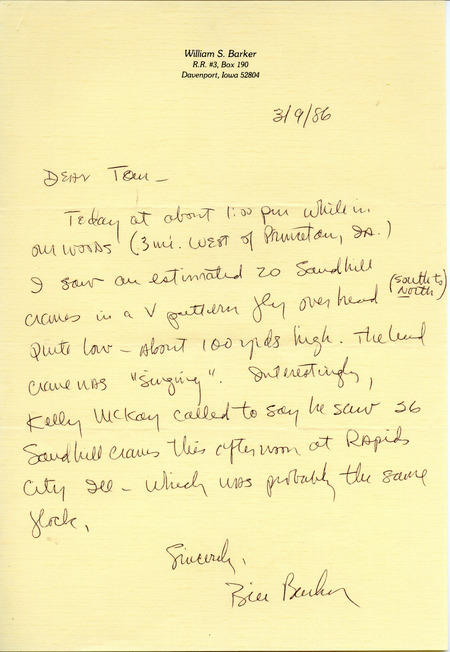 William S. Barker
R.R. #3, Box 190
Davenport, Iowa 52804
3/9/86
Dear Tom -
Today at about 1:00 pm while in
our woods (3 mi. west of Princeton, IA.)
I saw an estimated 20 Sandhill
cranes in a V pattern fly over head (south to North)
quite low - about 100 yds high. The lead
crane was "singing". Interestingly,
Kelly McKay called to say he saw 26
Sandhill cranes this afternoon at Rapids
City Ill - which was probably the same
flock.
Sincerely,
Bill Barker